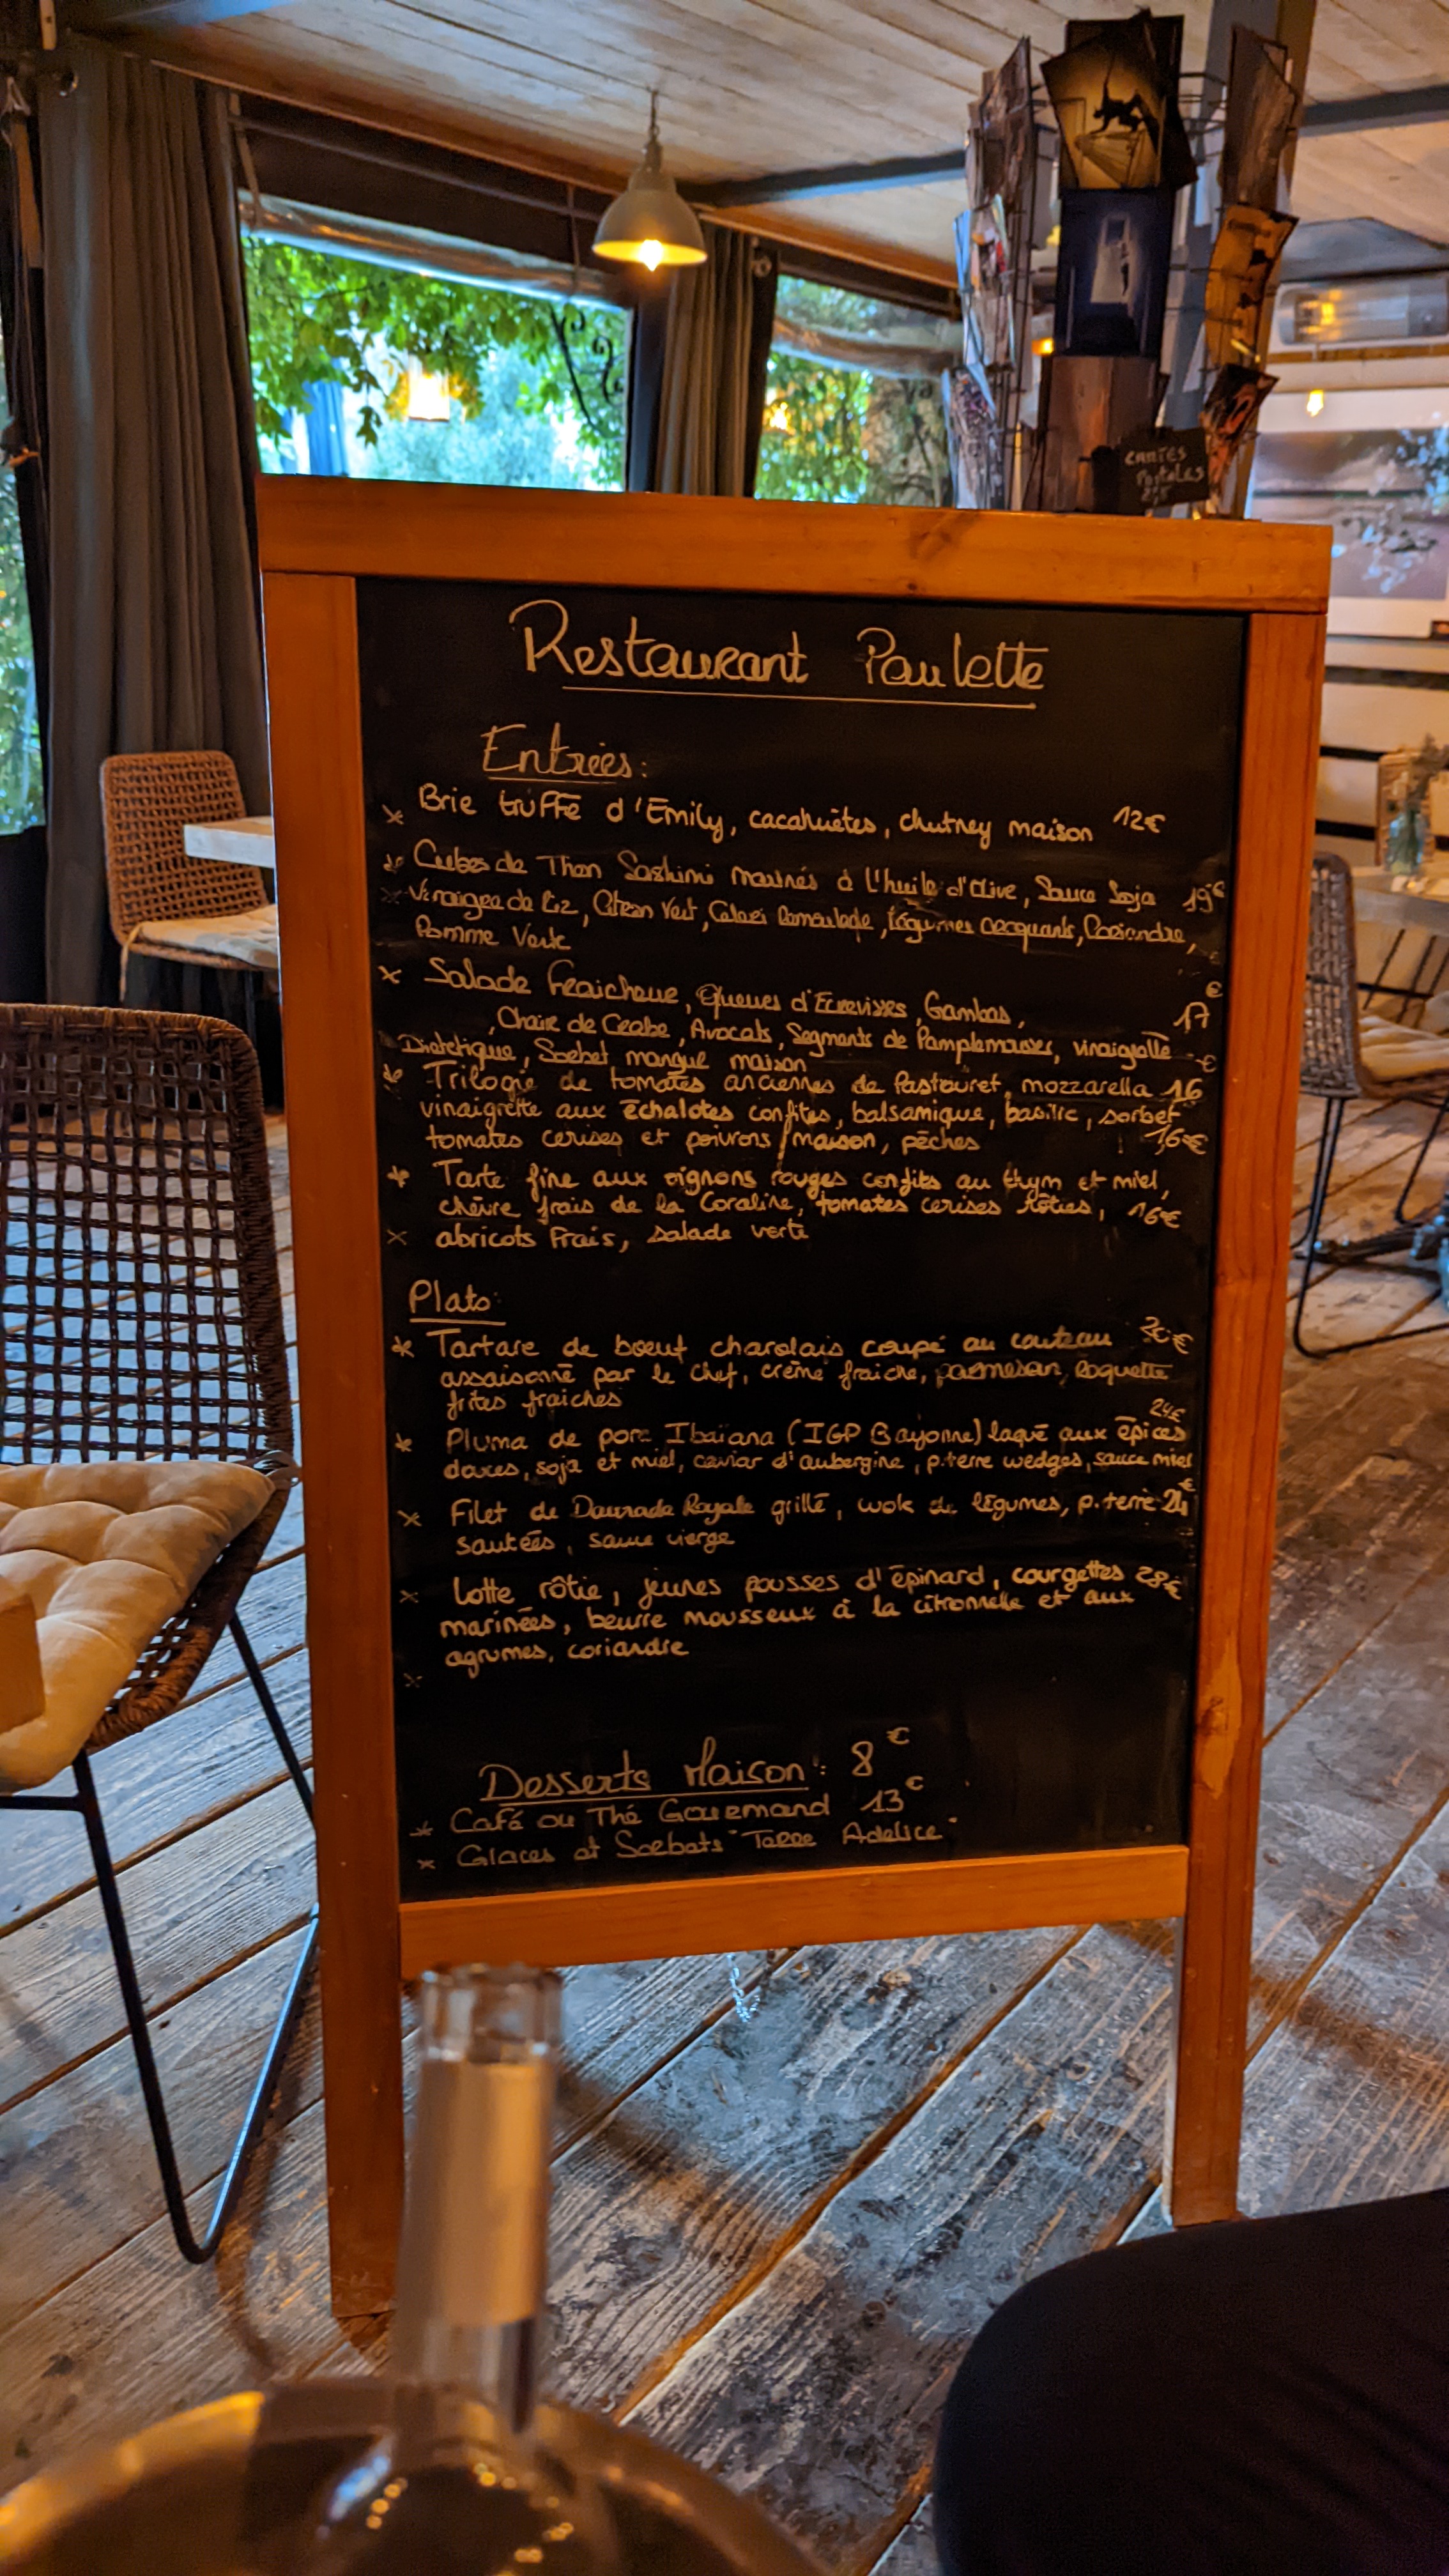 CARTES
Postales
Restaurant Paulette
Entrées:
* Brie truffé d'Emily, cacahuètes, chutney maison 12€
* Cubes de Thon Sashimi marinés à l'huile d'olive, Sauce Soja 19€
Vinaigre de Riz, Citron Vert, Céleri Remoulade, Légumes croquants, Coriandre,
Pomme Verte
* Salade Fraicheur, Queues d'Ecrevisses, Gambas, 17€
, Chair de Crabe, Avocats, Segments de Pamplemousses, vinaigrette
Diététique, Sorbet mangue maison
* Trilogie de tomates anciennes de Pastouret, mozzarella 16€
vinaigrette aux échalotes confites, balsamique, basilic, sorbet
tomates cerises et poivrons maison, pêches 16€
* Tarte fine aux oignons rouges confits au thym et miel,
chèvre frais de la Coraline, tomates cerises rôties, 16€
* abricots frais, salade verte
Plats:
* Tartare de bœuf charolais coupé au couteau €
assaisonné par le chef, crème fraiche, parmesan, roquette
frites fraiches
24€
* Pluma de porc Ibaïana (IGP Bayonne) laqué aux épices
douces, soja et miel, caviar d'aubergine, p.terre wedges, sauce miel
* Filet de Daurade Royale grillé, wok de légumes, p.terre 24€
sautées, sauce vierge
* Lotte rôtie, jeunes pousses d'épinard, courgettes 28€
marinées, beurre mousseux à la citronnelle et aux
agrumes, coriandre
Desserts Maison: 8€
* Café ou Thé Gourmand 13€
* Glaces et Sorbets "Terre Adelice"